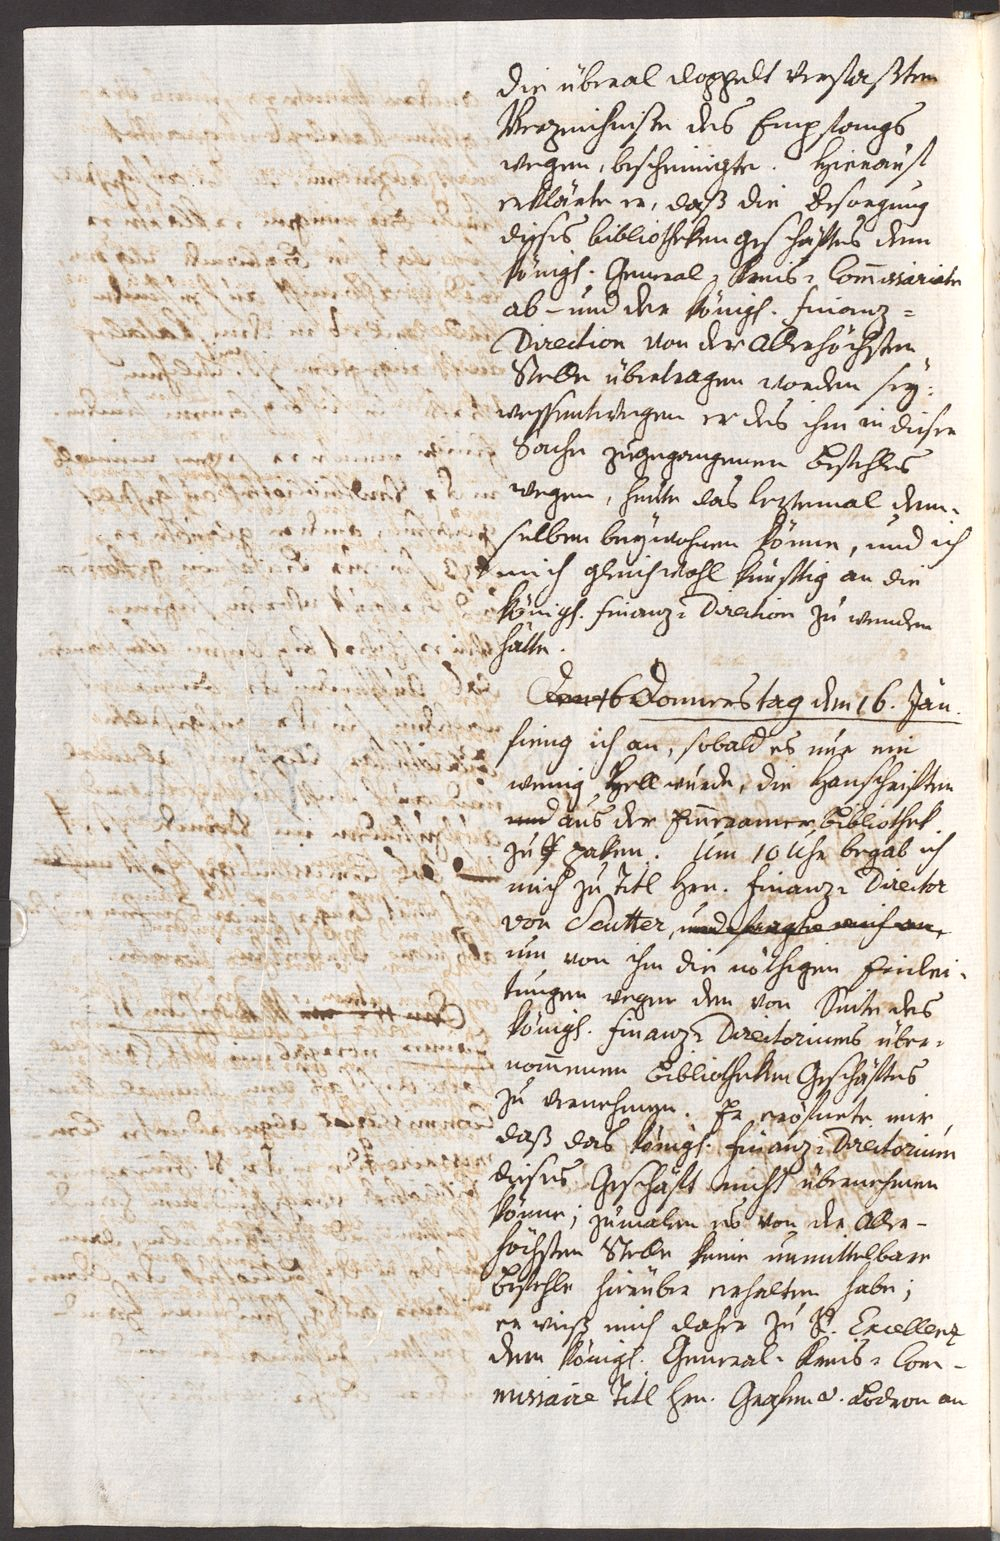 die überal doppelt verfaßten
Verzeichniße des Empfangs
wegen, bescheinigte. Hierauf
erklärte er, daß die Besorgung
dieses Bibliothekengeschäftes dem
königl. General-Kreis-Commissariate
ab- und der königl. Finanz-
Direction von der Allerhöchsten
Stelle übertragen worden sey:
wessentwegen er des ihm in dieser
Sache zugegangenen Befehles
wegen, heute das leztemal dem-
selben beywohnen könne, und ich
mich gleichwohl künftig an die
königl. Finanz-Direction zu wenden
hätte.
Donnerstag den 16. Jän.
fieng ich an, sobald es nur ein
wenig Hell wurde, die Hanschriften
und aus der Emmeramer Bibliothek
zu paken. Um 10 Uhr begab ich
mich zu Titl Hrn. Finanz-Director
von Seutter, und fragte mich an,
um von ihm die nöthigen Einlei-
tungen wegen dem von Seite des
königl. Finanz-Directoriums über-
nommenen Bibliotheken Geschäftes
zu vernehmen. Er eröfnete mir,
daß das königl. Finanz-Directorium
dieses Geschäft nicht übernehmen
könne; zumalen es von der Aller-
höchsten Stelle keine unmittelbare
Befehle hierüber erhalten habe;
er wieß mich daher zu Sr. Excellenz
dem königl. General-Kreis-Com-
missaire Titl Hrn. Grafen v. Lodron an